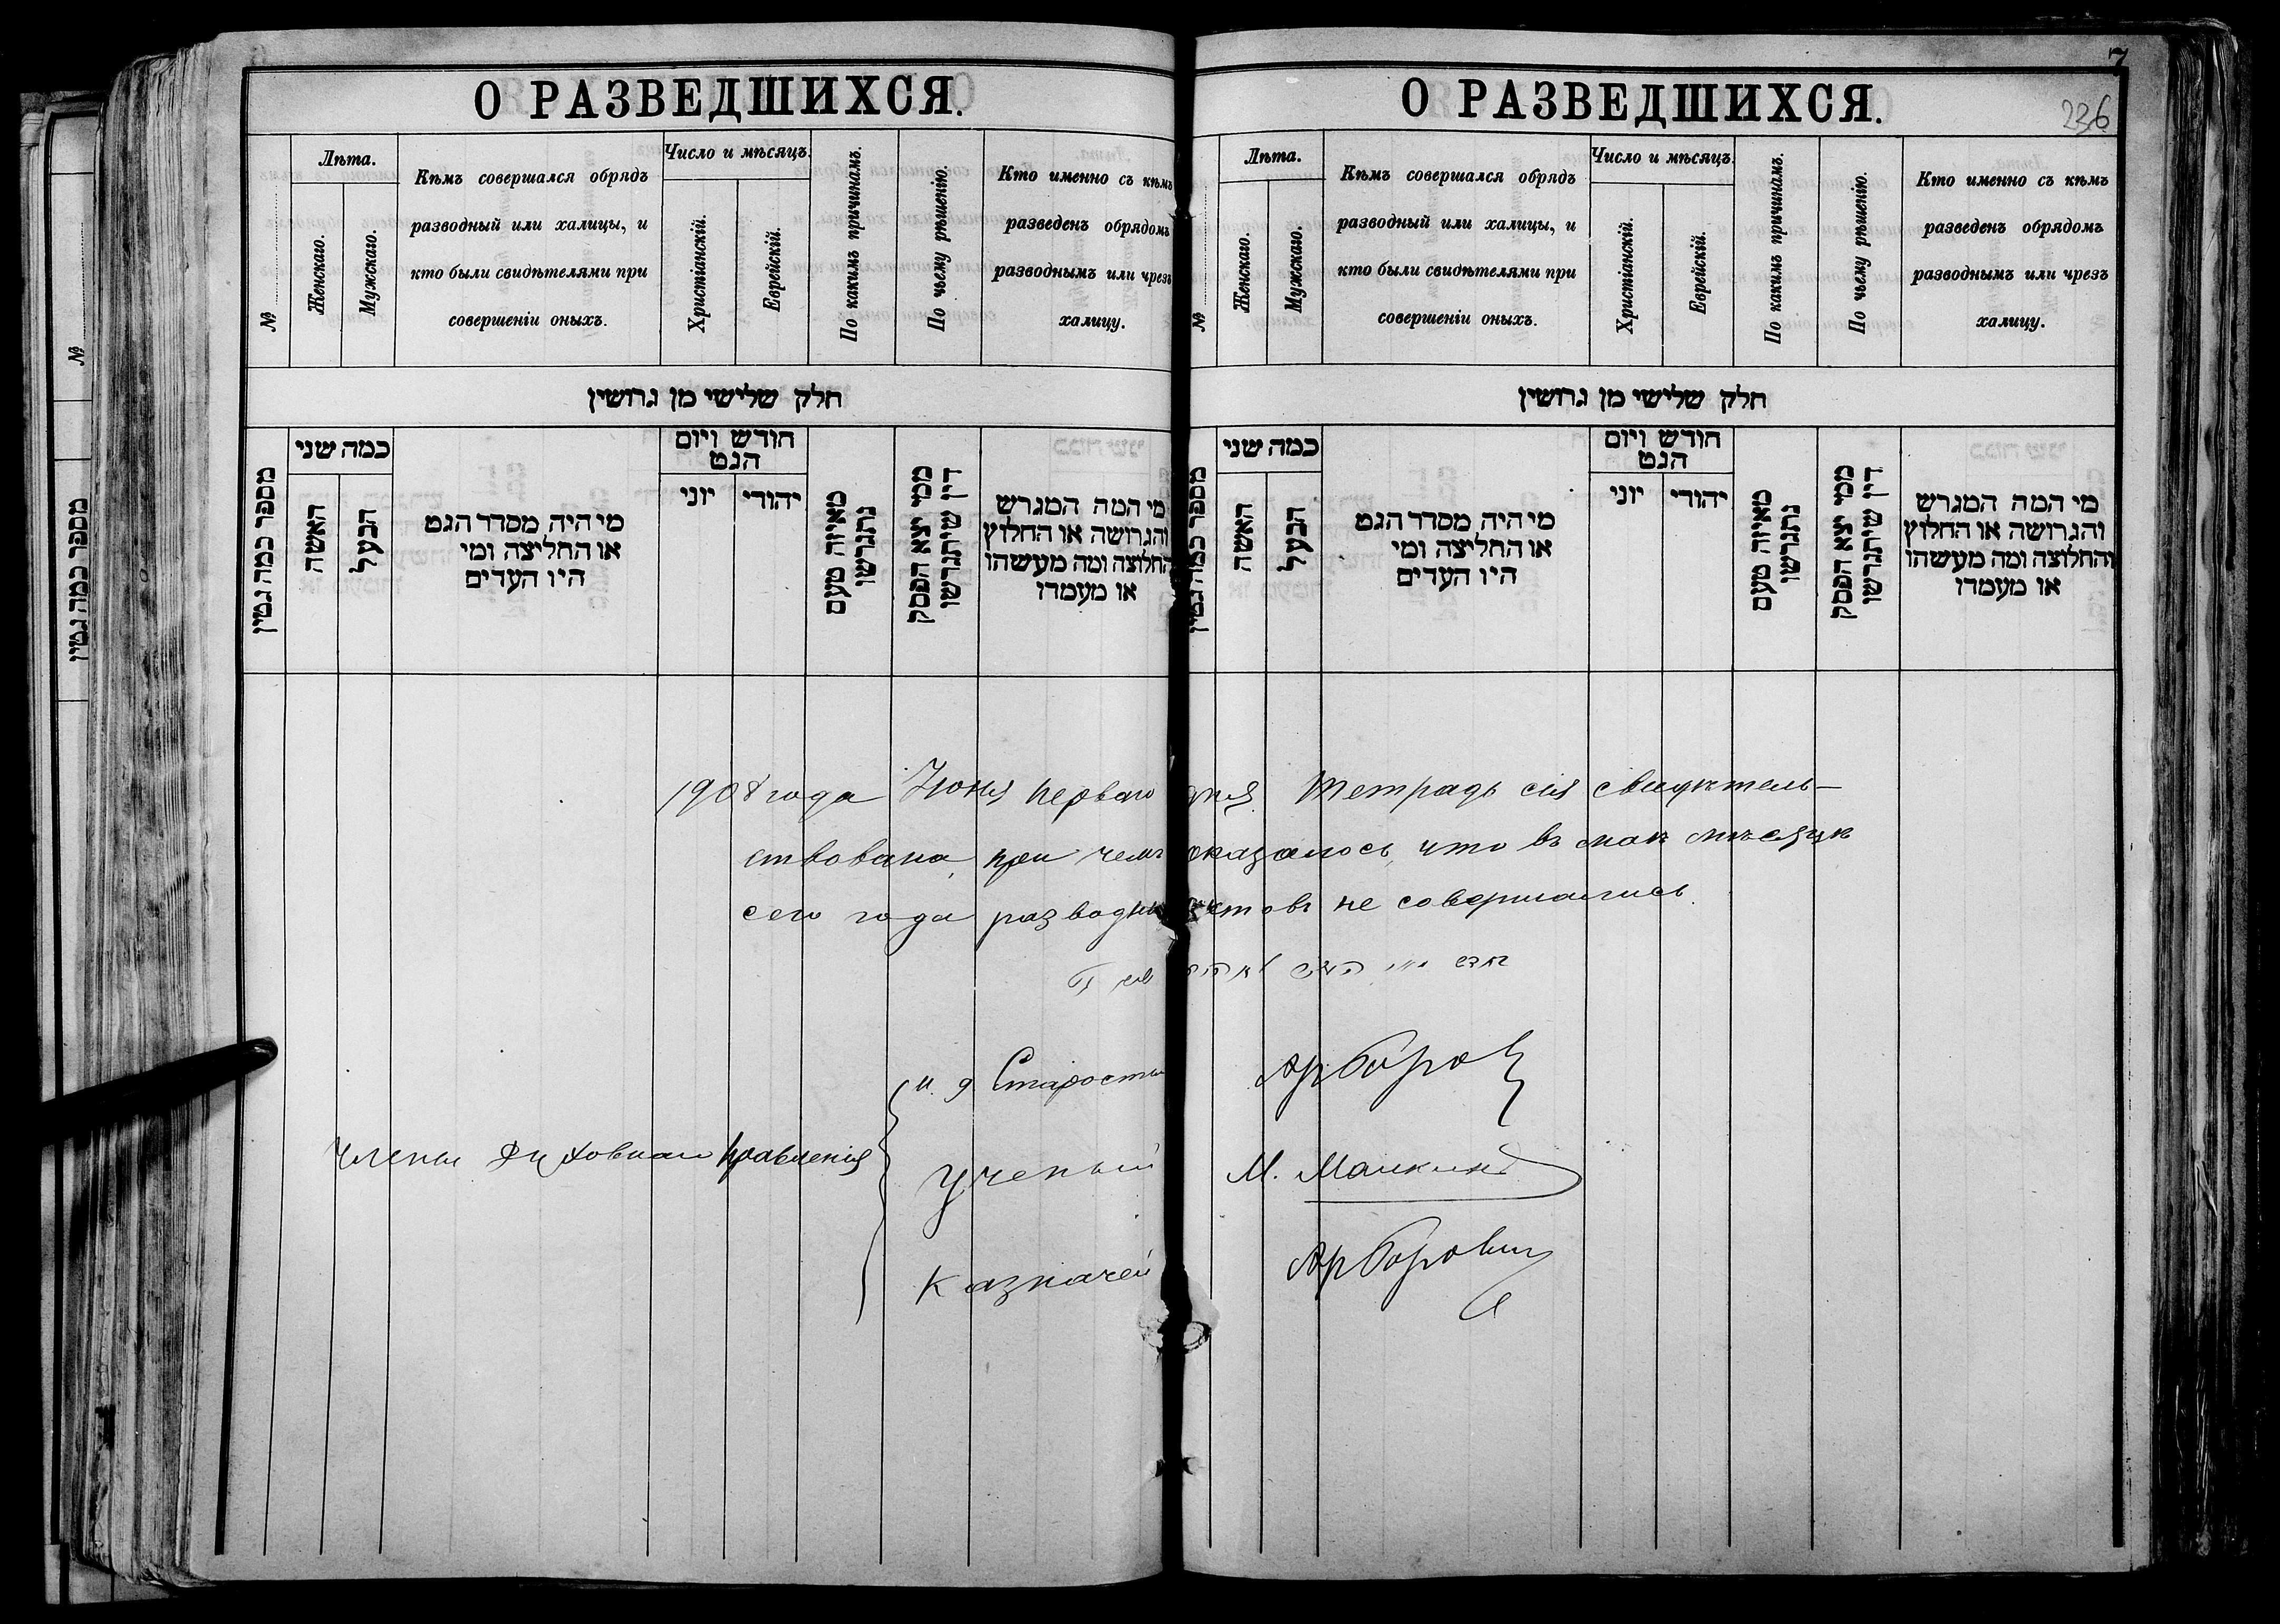 О РАЗВЕДШИХСЯ.
№
Лѣта.
Женскаго.
Мужскаго.
Кѣмъ совершался обрядъ
разводный или халицы, и
кто были свидѣтелями при
совершеніи оныхъ.
Число и мѣсяцъ.
Христіанскій.
Еврейскій.
По какимъ причинамъ.
По чьему рѣшенію.
Кто именно съ кѣмъ
разведенъ обрядомъ
разводнымъ или чрезъ
халицу.
חלק שלישי מן גרושין
מספר כמה גטין
כמה שני
האשה
הבעל
מי היה מסדר הגט
או החליצה ומי
היו העדים
חודש ויום
הגט
יוני
יהודי
מאיזה טעם
נתגרשו
ממי יצא הפסק
דין שיתגרשו
מי המה המגרש
והגרושה או החלוץ
והחלוצה ומה מעשהו
או מעמדו
7
О РАЗВЕДШИХСЯ.
236
№
Лѣта.
Женскаго.
Мужскаго.
Кѣмъ совершался обрядъ
разводный или халицы, и
кто были свидѣтелями при
совершеніи оныхъ.
Число и мѣсяцъ.
Христіанскій.
Еврейскій.
По какимъ причинамъ.
По чьему рѣшенію.
Кто именно съ кѣмъ
разведенъ обрядомъ
разводнымъ или чрезъ
халицу.
חלק שלישי מן גרושין
מספר כמה גטין
כמה שני
האשה
הבעל
מי היה מסדר הגט
או החליצה ומי
היו העדים
חודש ויום
הגט
יוני
יהודי
מאיזה טעם
נתגרשו
ממי יצא הפסק
דין שיתגרשו
מי המה המגרש
והגרושה או החלוץ
והחלוצה ומה מעשהו
או מעמדו
№
מספר כמה גטין
1908 года Іюня перваго дня Тетрадь сія свидѣтель-
ствована, при чемъ оказалось, что въ маѣ мѣсяцѣ
сего года разводн актовъ не совершались.
и. д. Старосты
Члены Духовнаго Правленія
Ученый М. Малкинъ
Казначей